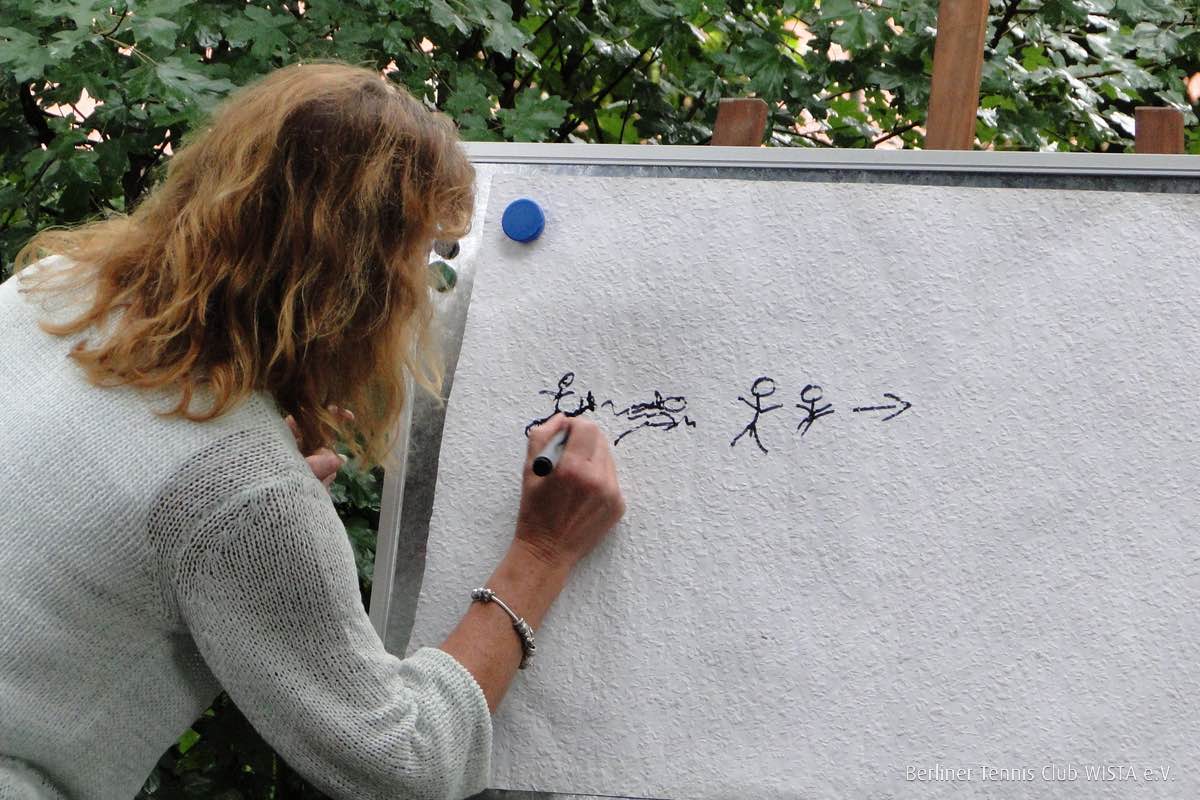 Berliner Tennis Club WISTA e.V.